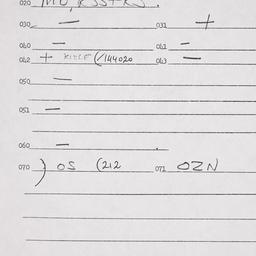 020
030 — 031 +
040 — 041 —
042 + (144020 043 —
050 —
051 —
060 —
070 ) OS (212 071 OZN